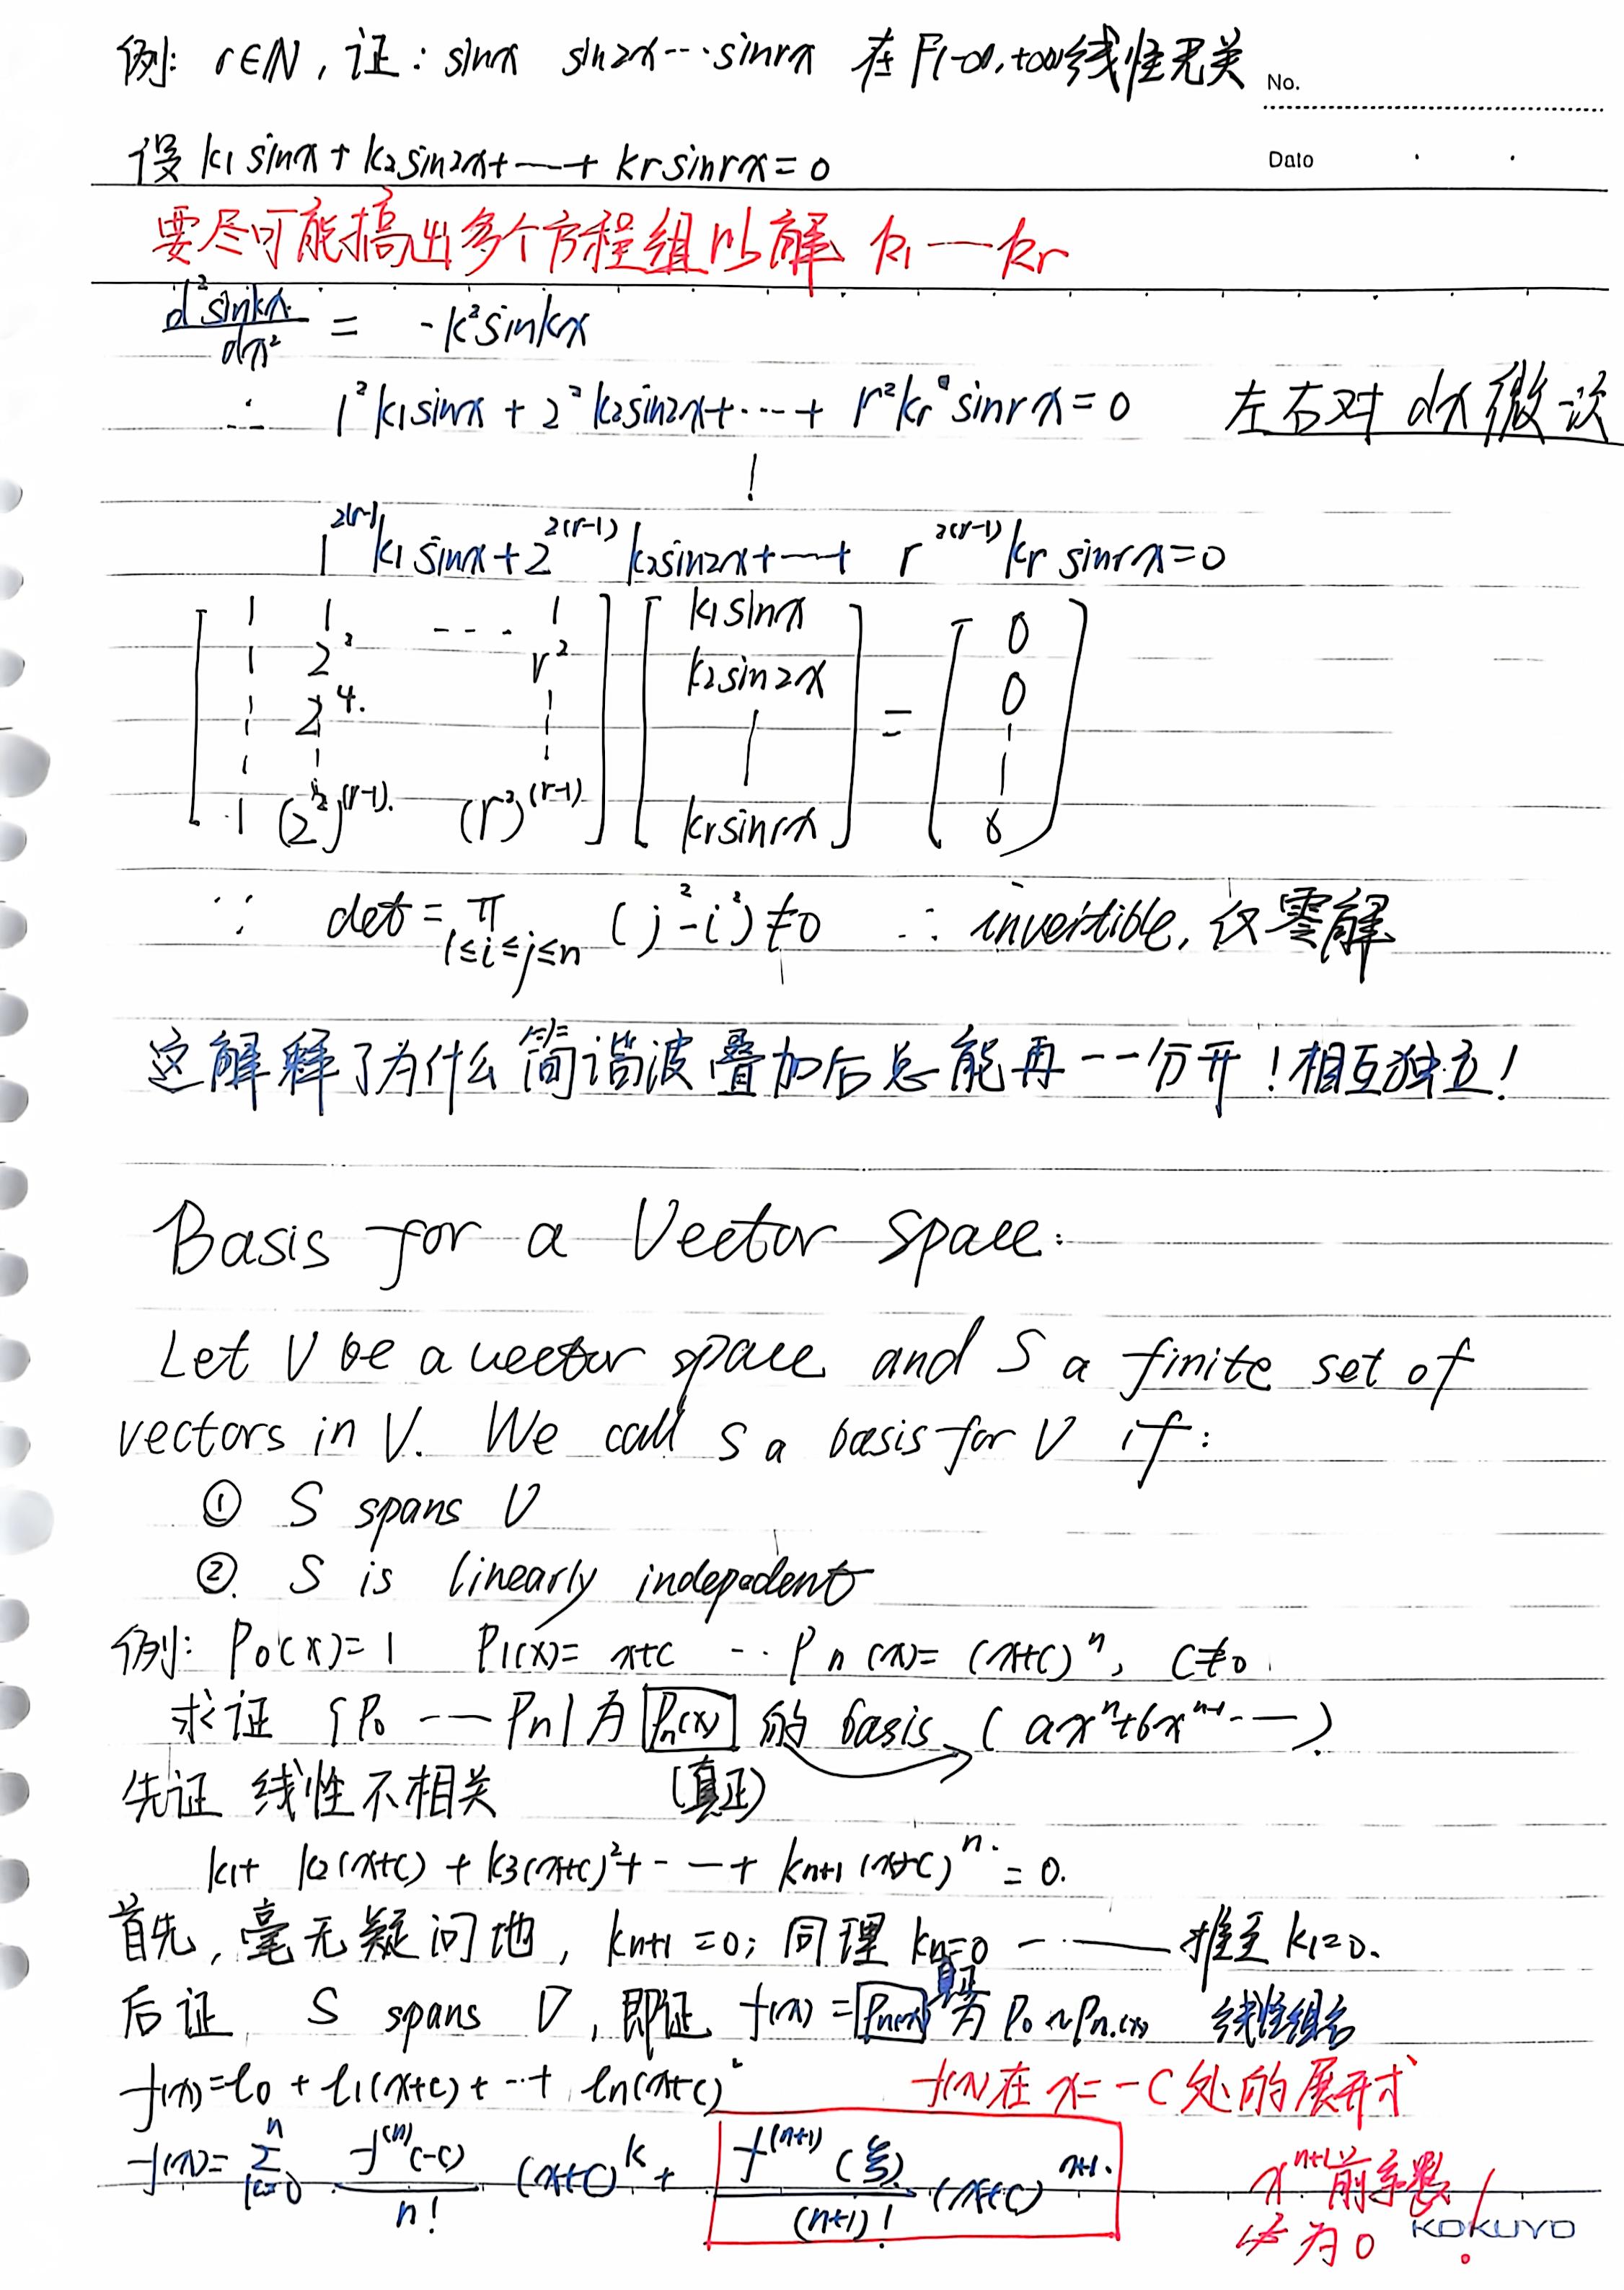 例: r∈N, 证: sinx sin2x···sinrx 在 F(-∞,+∞)线性无关
No.
Date
设 k₁sinx + k₂sin2x + —+ krsinrx = 0
要尽可能搞出多个方程组以解 k₁ — kr
d²sinkx/dx² = -k²sinkx
∴ 1²k₁sinx + 2²k₂sin2x + ··· + r²kr sinrx = 0 左右对 dx 微一次
1^{2(r-1)} k₁sinx + 2^{2(r-1)} k₂sin2x + —+ r^{2(r-1)} kr sinrx = 0
[ 1 1 --- 1 ] [ k₁sinx ] = [ 0 ]
1 2² r² k₂sin2x 0
1 2⁴
1 (2²)^{(r-1)} (r²)^{(r-1)} krsinrx 0
∵ det = π_{1≤i≤j≤n} (j²-i²) ≠ 0 ∴ invertible, 仅零解
这解释了为什么简谐波叠加后总能再一一分开!相互独立!
Basis for a Vector Space:
Let V be a vector space and S a finite set of
vectors in V. We call S a basis for V if:
① S spans V
②. S is linearly indepedent
例: P₀(x)=1 P₁(x)= x+c ··· Pn(x)= (x+c)ⁿ, c≠0
求证 {P₀ -— Pn} 为 Pn(x) 的 basis (axⁿ+bxⁿ⁻¹-—)
先证 线性不相关 (真正)
k₁+ k₂(x+c) + k₃(x+c)²+ - —+ kn+1(x+c)ⁿ = 0.
首先, 毫无疑问地, kn+1 =0; 同理 kn=0 -—— 推至 k₁=0.
后证 S spans V, 即证 f(x) = Pn(x) 为 P₀~Pn(x) 线性组合
真正
f(x)=l₀ + l₁(x+c) + ··+ ln(x+c)² f(x)在 x=-c 处的展开式
f(x)= Σ_{k=0}^{n} f^{(n)}(-c)/n! (x+c)^k + f^{(n+1)}(ξ)/(n+1)! (x+c)^{n+1}
x^{n+1}前系数
必为0!
KOKUYO